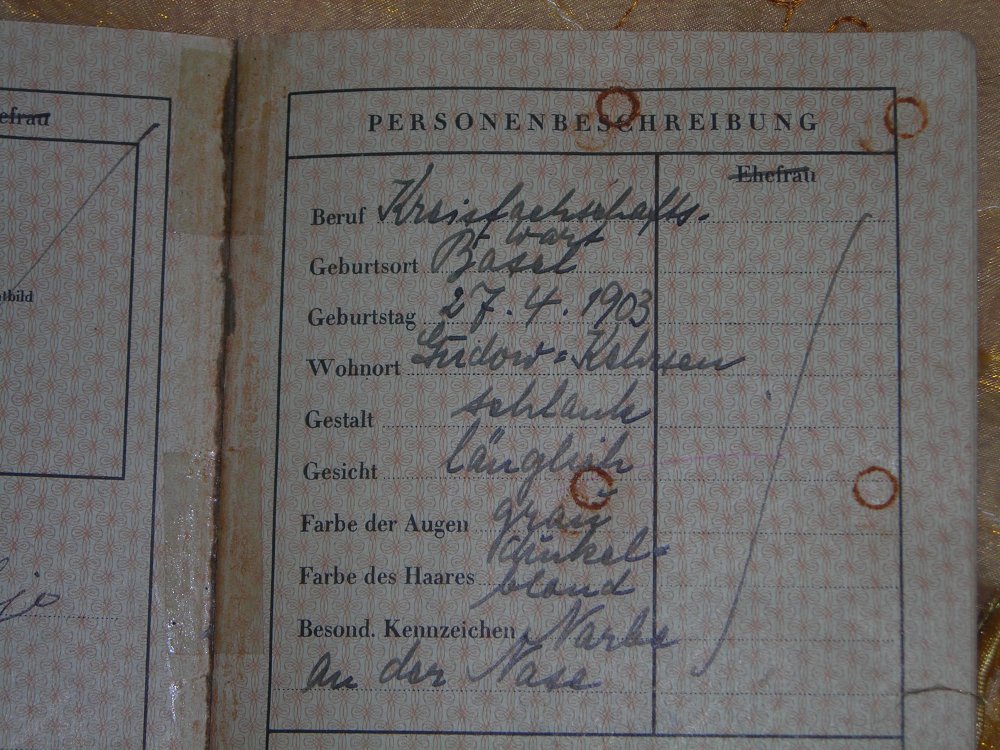 efrau
PERSONENBESCHREIBUNG
Ehefrau
Beruf Kreisfachschafts-
wart
Geburtsort Basel
Geburtstag 27.4.1903
tbild
Wohnort Gudow-Kehrsen
Gestalt schlank
Gesicht länglich
Farbe der Augen grau
Farbe des Haares dunkel-
blond
Besond. Kennzeichen Narbe
an der Nase